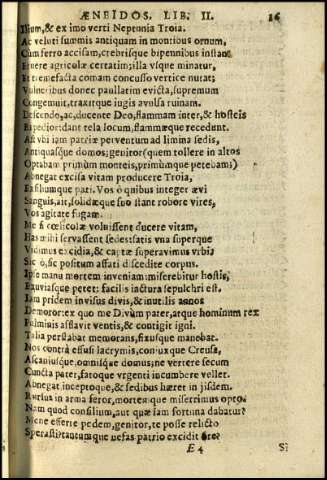 ÆNEIDOS. LIB. II. 16
Ilium, & ex imo verti Neptunia Troia.
Ac veluti summis antiquam in montibus ornum,
Cum ferro accisam, crebrisque bipennibus instant
Eruere agricolæ certatim; illa vsque minatur,
Et tremefacta comam concusso vertice nutat;
Vulneribus donec paullatim evicta, supremum
Congemuit, traxitque jugis avulsa ruinam.
Descendo, ac, ducente Deo, flammam inter, & hosteis
Expedior: dant tela locum, flammæque recedunt.
Ast vbi iam patriæ perventum ad limina sedis,
Antiquasque domos; genitor (quem tollere in altos
Optabam primùm monteis, primùmque petebam)
Abnegat excisa vitam producere Troia,
Exsiliumque pati. Vos ô quibus integer ævi
Sanguis, ait, solidæque suo stant robore vires,
Vos agitate fugam.
Me si cœlicolæ voluissent ducere vitam,
Has mihi servassent sedes: satis vna superque
Vidimus excidia, & captæ superavimus vrbi.
Sic ô, sic positum affati discedite corpus.
Ipse manu mortem inveniam: miserebitur hostis,
Exuviasque petet: facilis iactura sepulchri est.
Iam pridem invisus divis, & inutilis annos
Demoror: ex quo me Divûm pater, atque hominum rex
Fulminis afflavit ventis, & contigit igni.
Talia perstabat memorans, fixusque manebat.
Nos contrà effusi lacrymis, coniuxque Creusa,
Ascaniusque, omnisque domus; ne vertere secum
Cuncta pater, fatoque vrgenti incumbere vellet.
Abnegat, inceptoque, & sedibus hæret in jisdem.
Rursus in arma feror, mortemque miserrimus opto.
Nam quod consilium, aut quæ iam fortuna dabatur?
Mene efferre pedem, genitor, te posse relicto
Sperasti? tantumque nefas patrio excidit ore?
E 4 Si